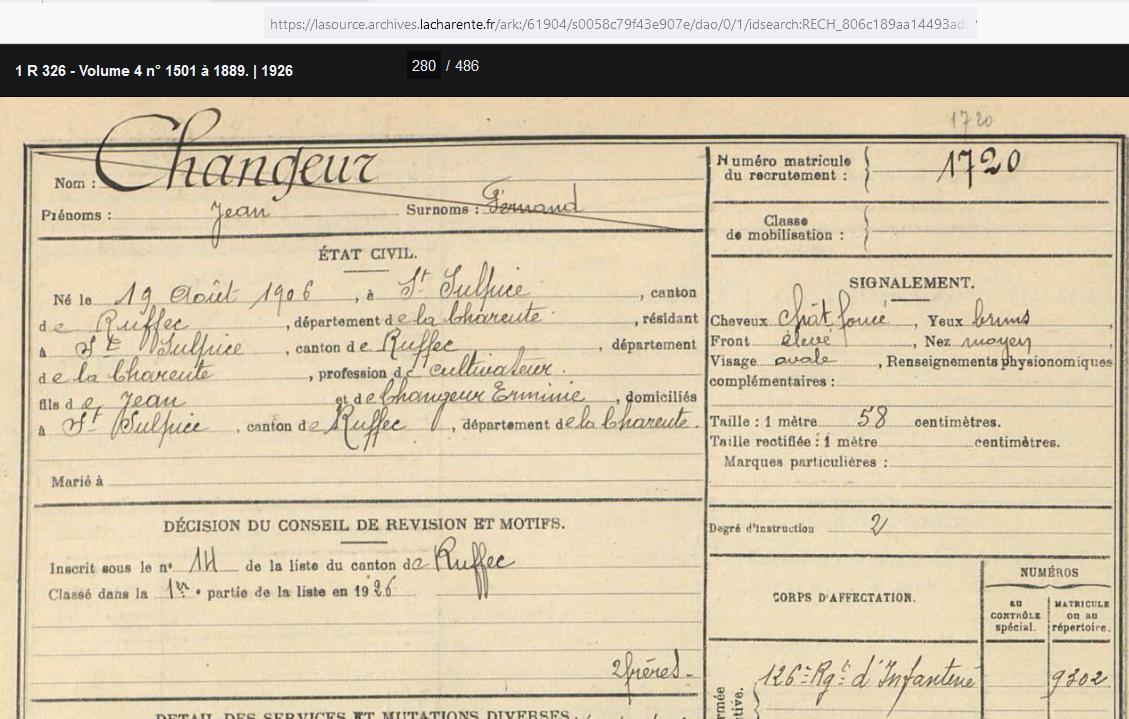 https://lasource.archives.lacharente.fr/ark:/61904/s0058c79f43e907e/dao/0/1/idsearch:RECH_806c189aa14493ad
1 R 326 - Volume 4 n° 1501 à 1889. | 1926
280 / 486
1720
Nom : Changeur
Prénoms : Jean Surnoms : Fernand
Numéro matricule du recrutement : 1720
Classe de mobilisation :
ÉTAT CIVIL.
Né le 19 Août 1906, à St Sulpice, canton
de Ruffec, département de la Charente, résidant
à St Sulpice, canton de Ruffec, département
de la Charente, profession de cultivateur.
fils de Jean et de Changeur Erminie, domiciliés
à St Sulpice, canton de Ruffec, département de la Charente.
Marié à
SIGNALEMENT.
Cheveux chât foncé, Yeux bruns,
Front élevé, Nez moyen,
Visage ovale, Renseignements physionomiques
complémentaires :
Taille : 1 mètre 58 centimètres.
Taille rectifiée : 1 mètre centimètres.
Marques particulières :
Degré d'instruction 2
DÉCISION DU CONSEIL DE REVISION ET MOTIFS.
Inscrit sous le n° 14 de la liste du canton de Ruffec
Classé dans la 1re partie de la liste en 1926
2 frères.
DÉTAIL DES SERVICES ET MUTATIONS DIVERSES.
CORPS D'AFFECTATION.
NUMÉROS
au CONTRÔLE spécial.
MATRICULE ou au répertoire.
126e Rgt d'Infanterie 9302